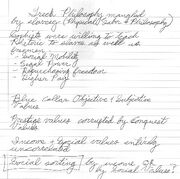 Greek Philosophy mangled
by slavery (Physical Labor & Philosophy)
Sophists were willing to teach
Rhetoric to slaves as well as
freemen
- Social Mobility
- Legal Power
- Repurchasing freedom
- Higher Wage
Blue collar Objective & Subjective
Values
Prestige values corrupted by Conquest
Values
Income & Social values entirely
uncorrelated
Social sorting by income IQ
by Social Values?